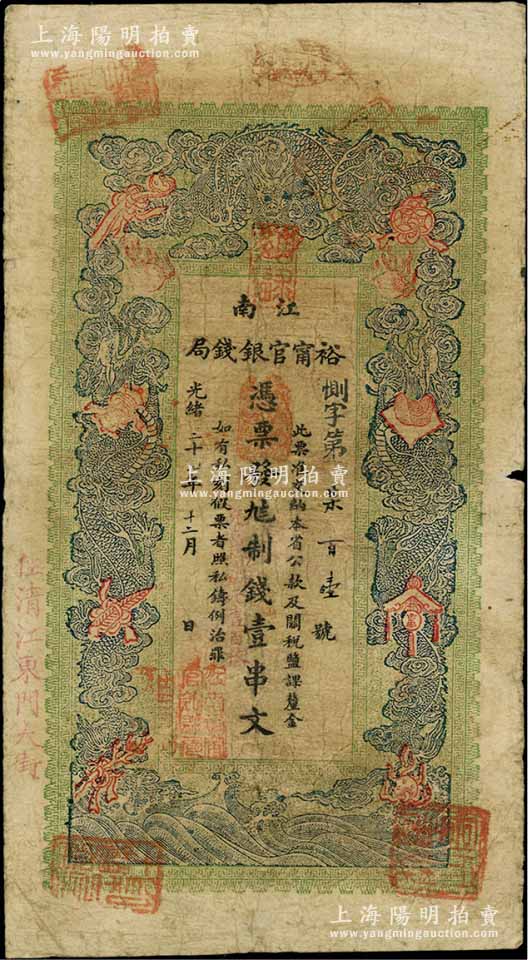 上海陽明拍賣
www.yangmingauction.com
江南
裕甯官銀錢局
惻字第
百壹號
此票准完納本省公款及關税鹽課釐金
憑票發九制錢壹串文
如有私刻假票者照私鑄例治罪
光緒三十年十二月 日
住清江東門大街
上海陽明拍賣
www.yangmingauction.com
上海陽明拍賣
www.yangmingauction.com